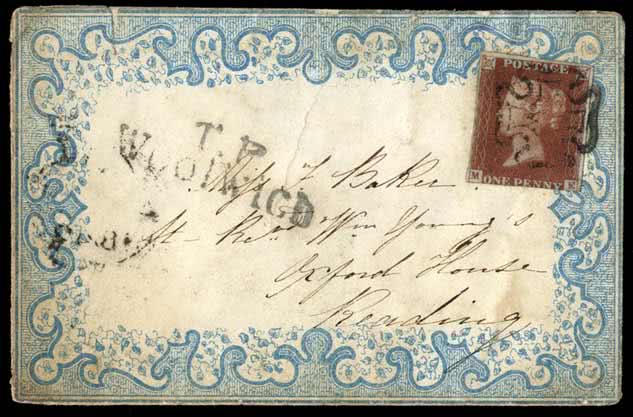 POSTAGE
M E
ONE PENNY
T.P
Miss F Baker
At Revd Wm Young's
Oxford House
Reading